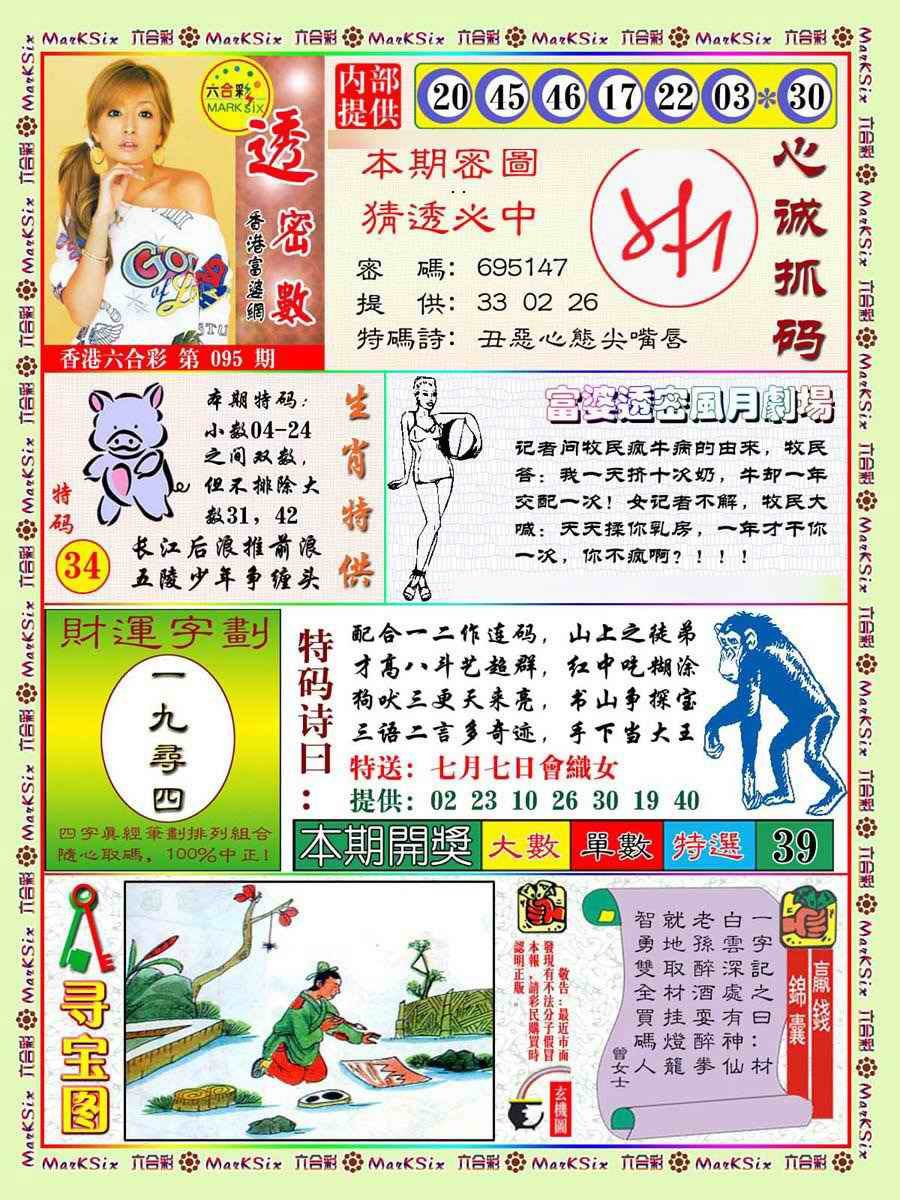 MarKSix 六合彩 MarKSix 六合彩 MarKSix 六合彩 MarKSix 六合彩 MarKSix 六合彩
六合彩
MARK six
透密數
香港富婆網
香港六合彩 第 095 期
内部提供
20 45 46 17 22 03 * 30
本期密圖
猜透必中
密 碼: 695147
提 供: 33 02 26
特碼詩: 丑惡心態尖嘴唇
心诚抓码
特码
34
本期特码:
小数04-24
之间双数,
但不排除大
数31, 42
长江后浪推前浪
五陵少年争缠头
生肖特供
富婆透密風月劇場
记者问牧民疯牛病的由来, 牧民
答: 我一天挤十次奶, 牛却一年
交配一次! 女记者不解, 牧民大
喊: 天天揉你乳房, 一年才干你
一次, 你不疯啊? ! ! !
財運字劃
一九尋四
四字真經筆劃排列組合
隨心取碼, 100%中正!
特码诗曰:
配合一二作连码, 山上之徒弟
才高八斗艺超群, 红中吃糊涂
狗吠三更天来亮, 书山争探宝
三语二言多奇迹, 手下当大王
特送: 七月七日會織女
提供: 02 23 10 26 30 19 40
本期開獎 大數 單數 特選 39
寻宝图
敬告:最近市面
發現有不法分子假冒
本報,請彩民購買時
認明正版。
玄機圖
贏錢
錦囊
一字記之曰:材
白雲深處有神仙
老孫醉酒耍醉拳
就地取材挂燈籠
智勇雙全買碼人
曾女士
MarKSix 六合彩 MarKSix 六合彩 MarKSix 六合彩 MarKSix 六合彩 MarKSix 六合彩